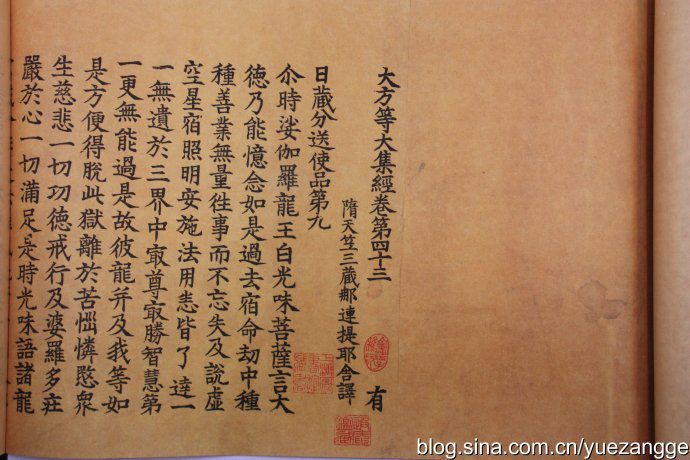 大方等大集經卷第四十三 有
隋天竺三藏那連提耶舍譯
日藏分送使品第九
尒時娑伽羅龍王白光味菩薩言大
徳乃能憶念如是過去宿命劫中種
種善業無量徃事而不忘失及說虛
空星宿照明安施法用悉皆了達一
一無遺於三界中㝡尊㝡勝智慧第
一更無能過是故彼龍并及我等如
是方便得脫此獄離於苦惱憐愍衆
生慈悲一切功徳戒行及婆羅多莊
嚴於心一切滿足是時光味語諸龍
blog.sina.com.cn/yuezangge